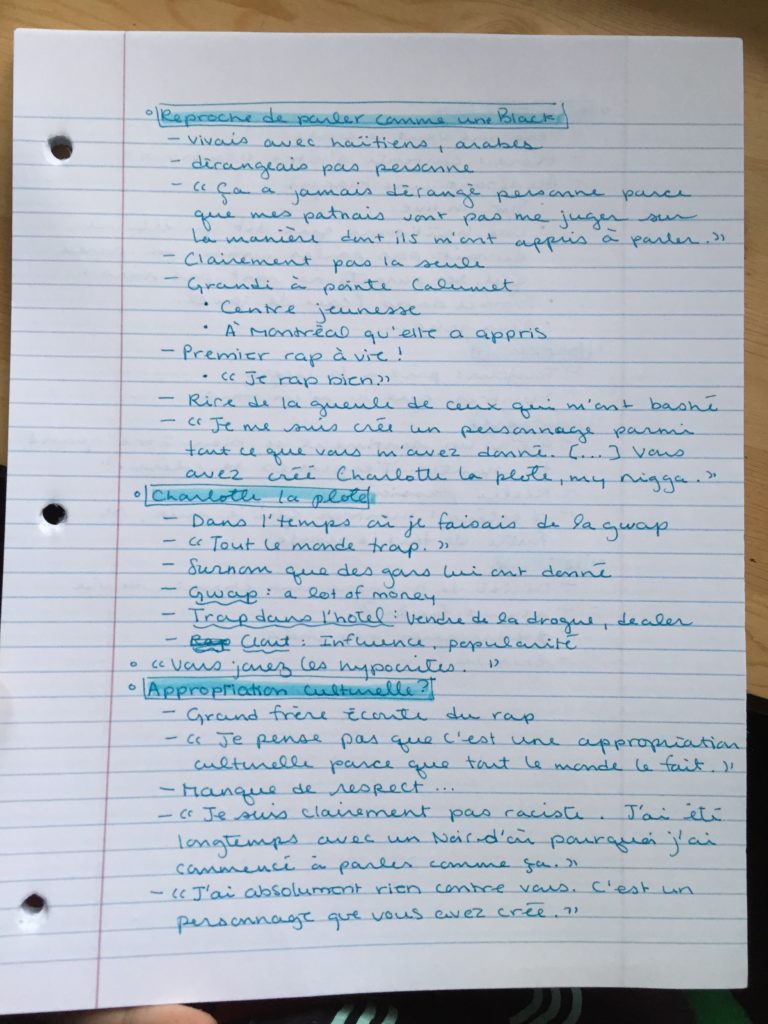 ° Reproche de parler comme une Black
- vivais avec haïtiens, arabes
- dérangeais pas personne
- « Ça a jamais dérangé personne parce
que mes patnais vont pas me juger sur
la manière dont ils m'ont appris à parler. »
- Clairement pas la seule
- Grandi à pointe Calumet
• Centre jeunesse
• À Montréal qu'elle a appris
- Premier rap à vie !
• « Je rap bien »
- Rire de la gueule de ceux qui m'ont bashé
- « Je me suis créé un personnage parmi
tout ce que vous m'avez donné. [...] Vous
avez créé Charlotte la plote, my nigga. »
° Charlotte la plote
- Dans l'temps où je faisais de la gwap
- « Tout le monde trap. »
- Surnom que des gars lui ont donné
- Gwap : a lot of money
- Trap dans l'hotel : vendre de la drogue, dealer
- Clout : Influence, popularité
° « Vous jouez les hypocrites. »
° Appropriation culturelle ?
- Grand frère écoute du rap
- « Je pense pas que c'est une appropriation
culturelle parce que tout le monde le fait. »
- Manque de respect ...
- « Je suis clairement pas raciste. J'ai été
longtemps avec un Noir d'où pourquoi j'ai
commencé à parler comme ça. »
- « J'ai absolument rien contre vous. C'est un
personnage que vous avez créé. »